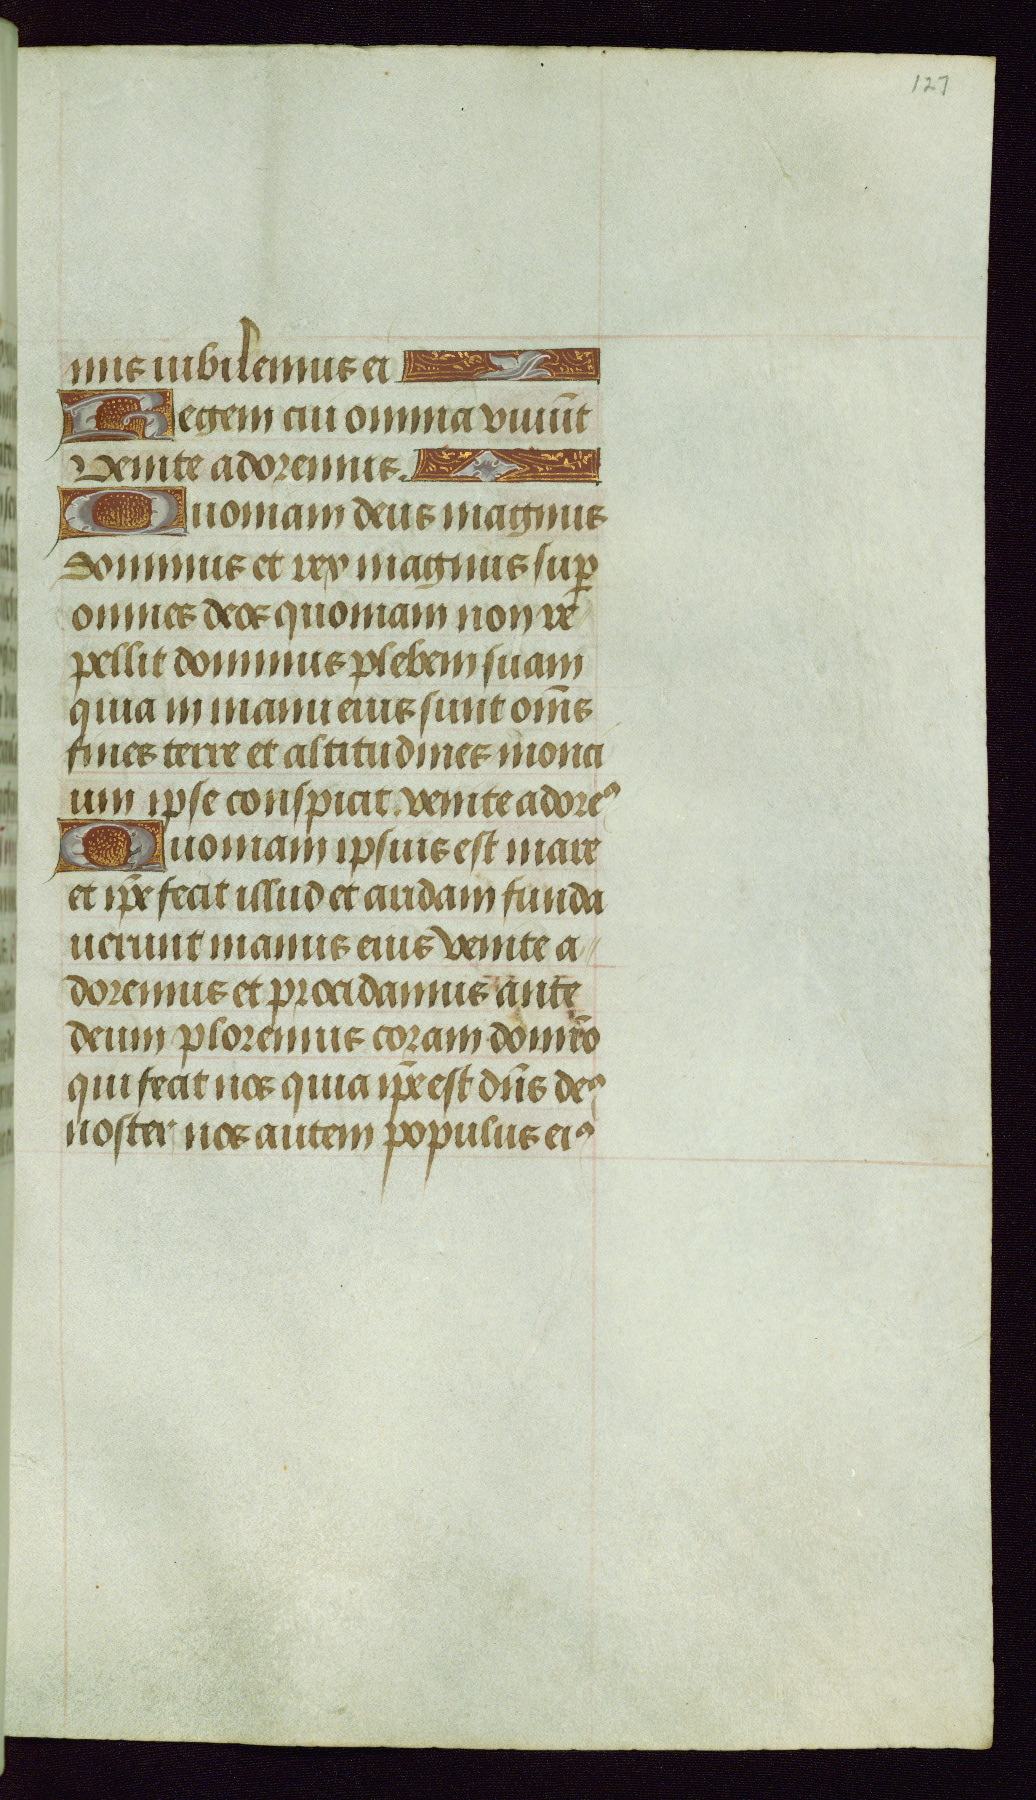 127
mis iubilemus ei
Regem cui omnia viuu͞t
Venite adoremus.
Quoniam deus magnus
dominus et rex magnus sup̱
omnes deos quoniam non re
pellit dominus plebem suam
quia in manu eius sunt om̄s
fines terre et altitudines monci
um ipse conspicit. venite adoreꝰ
Quoniam ipsius est mare
et ip̄e fecit illud et aridam funda
uerunt manus eius Venite a
doremus et procidamus ante
deum ploremus coram domino
qui fecit nos quia ip̄e est dn̄s deꝰ
noster nos autem populus eiꝰ